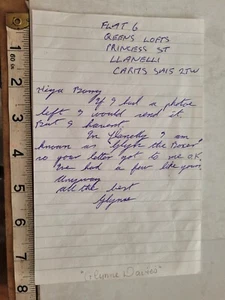 FLAT 6
QEENS LOFTS
PRINCESS ST
LLANELLI
CARMS SA15 2TW
Hiya Barry
If I had a photo
left I would send it
But I havent.
In Llanelly I am
known as "Glyn the Boxer"
so your letter got to me O.K,
Ive had a few like yours
Anyway
all the best
Glynne
"Glynne Davies"
1
2
3
4
5
6
7
8